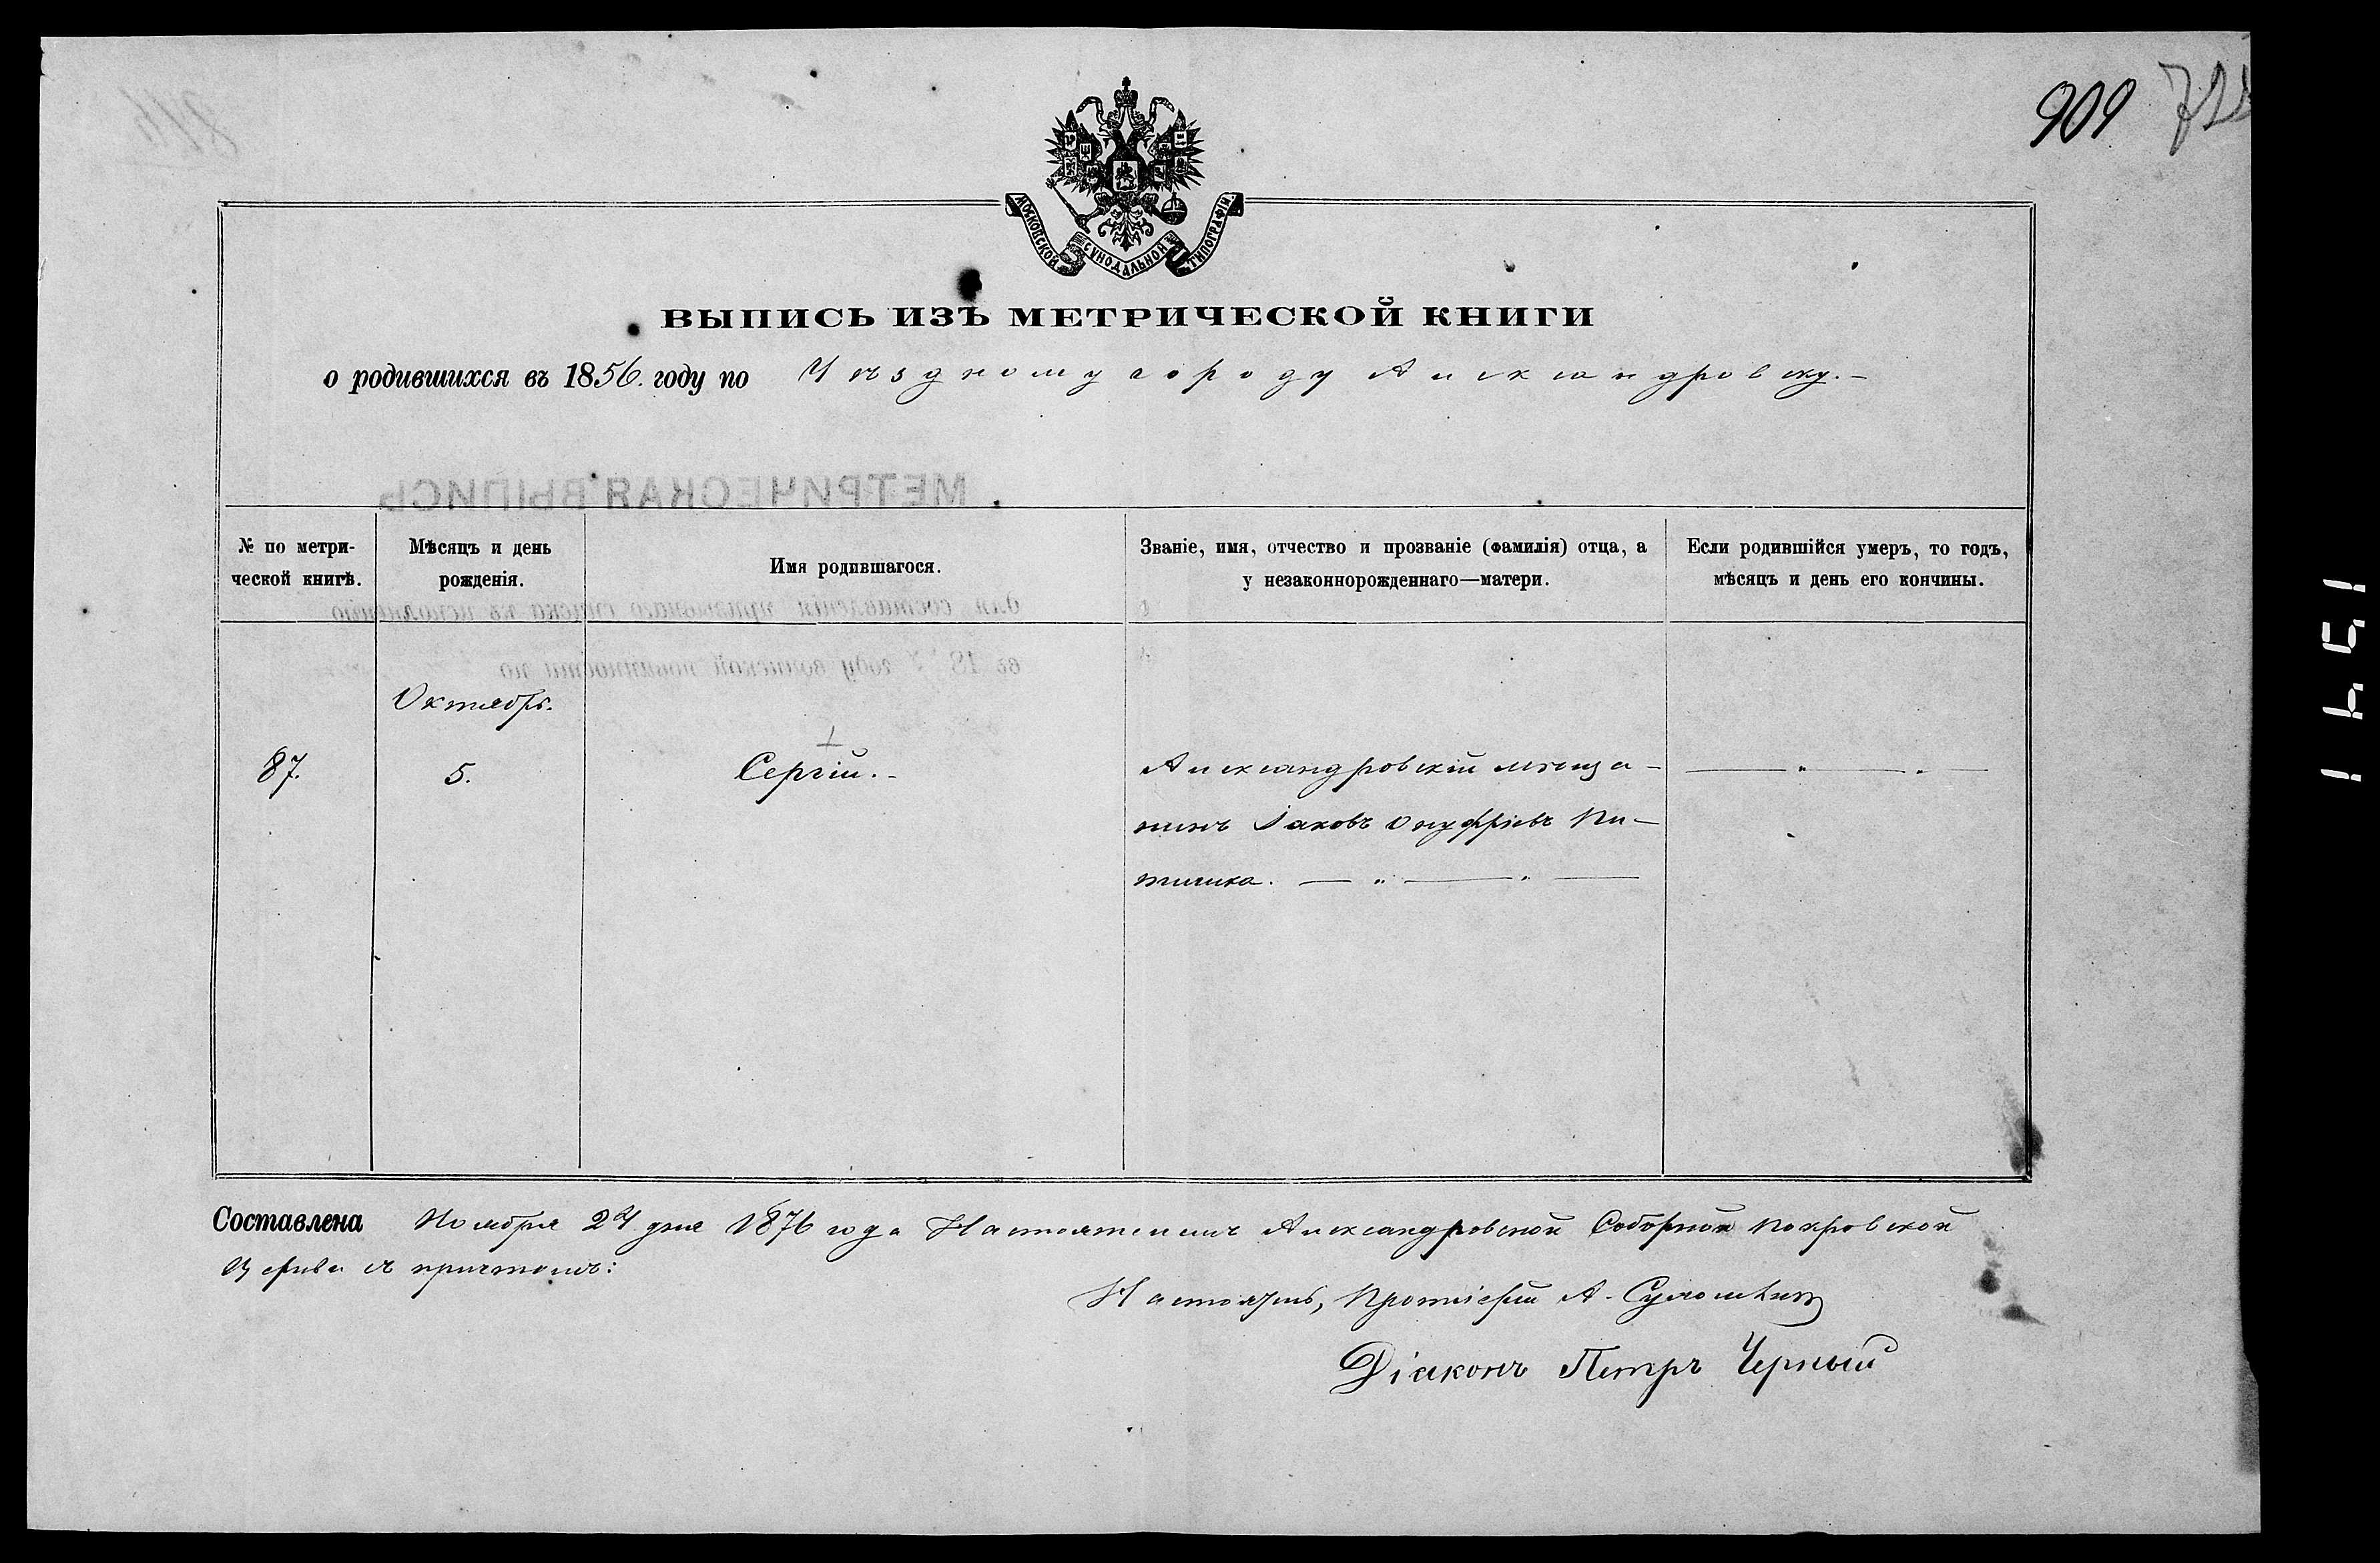 909
МОСКОВСКОЙ СѴНОДАЛЬНОЙ ТИПОГРАФІИ
ВЫПИСЬ ИЗЪ МЕТРИЧЕСКОЙ КНИГИ
о родившихся въ 1856. году по Уѣздному городу Александровску.—
МЕТРИЧЕСКАЯ ВЫПИСЬ
№ по метри-
ческой книгѣ.
Мѣсяцъ и день
рожденія.
Имя родившагося.
Званіе, имя, отчество и прозваніе (фамилія) отца, а
у незаконнорожденнаго—матери.
Если родившійся умеръ, то годъ,
мѣсяцъ и день его кончины.
для составленія призывнаго списка къ исполненію
въ 18 году воинской повинности по
Октябрь.
87.
5.
Сергій.-
Александровскій мѣща-
нинъ Іаковъ Онуфріевъ
Составлена Ноября 24 дня 1876 года Настоятелемъ Александровской Соборной Покровской
Церкви съ причтомъ:
Протоіерей А.
Діаконъ Петръ Черный
1451